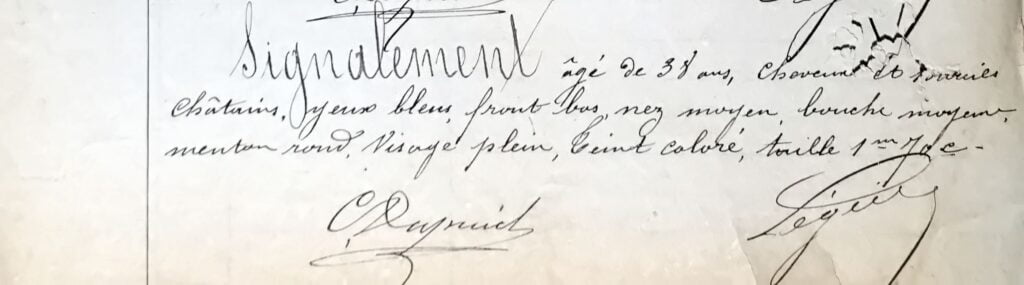 Signalement âgé de 38 ans, cheveux et sourcils
châtains, yeux bleus, front bas, nez moyen, bouche moyenne,
menton rond, Visage plein, teint coloré, taille 1m 70c -